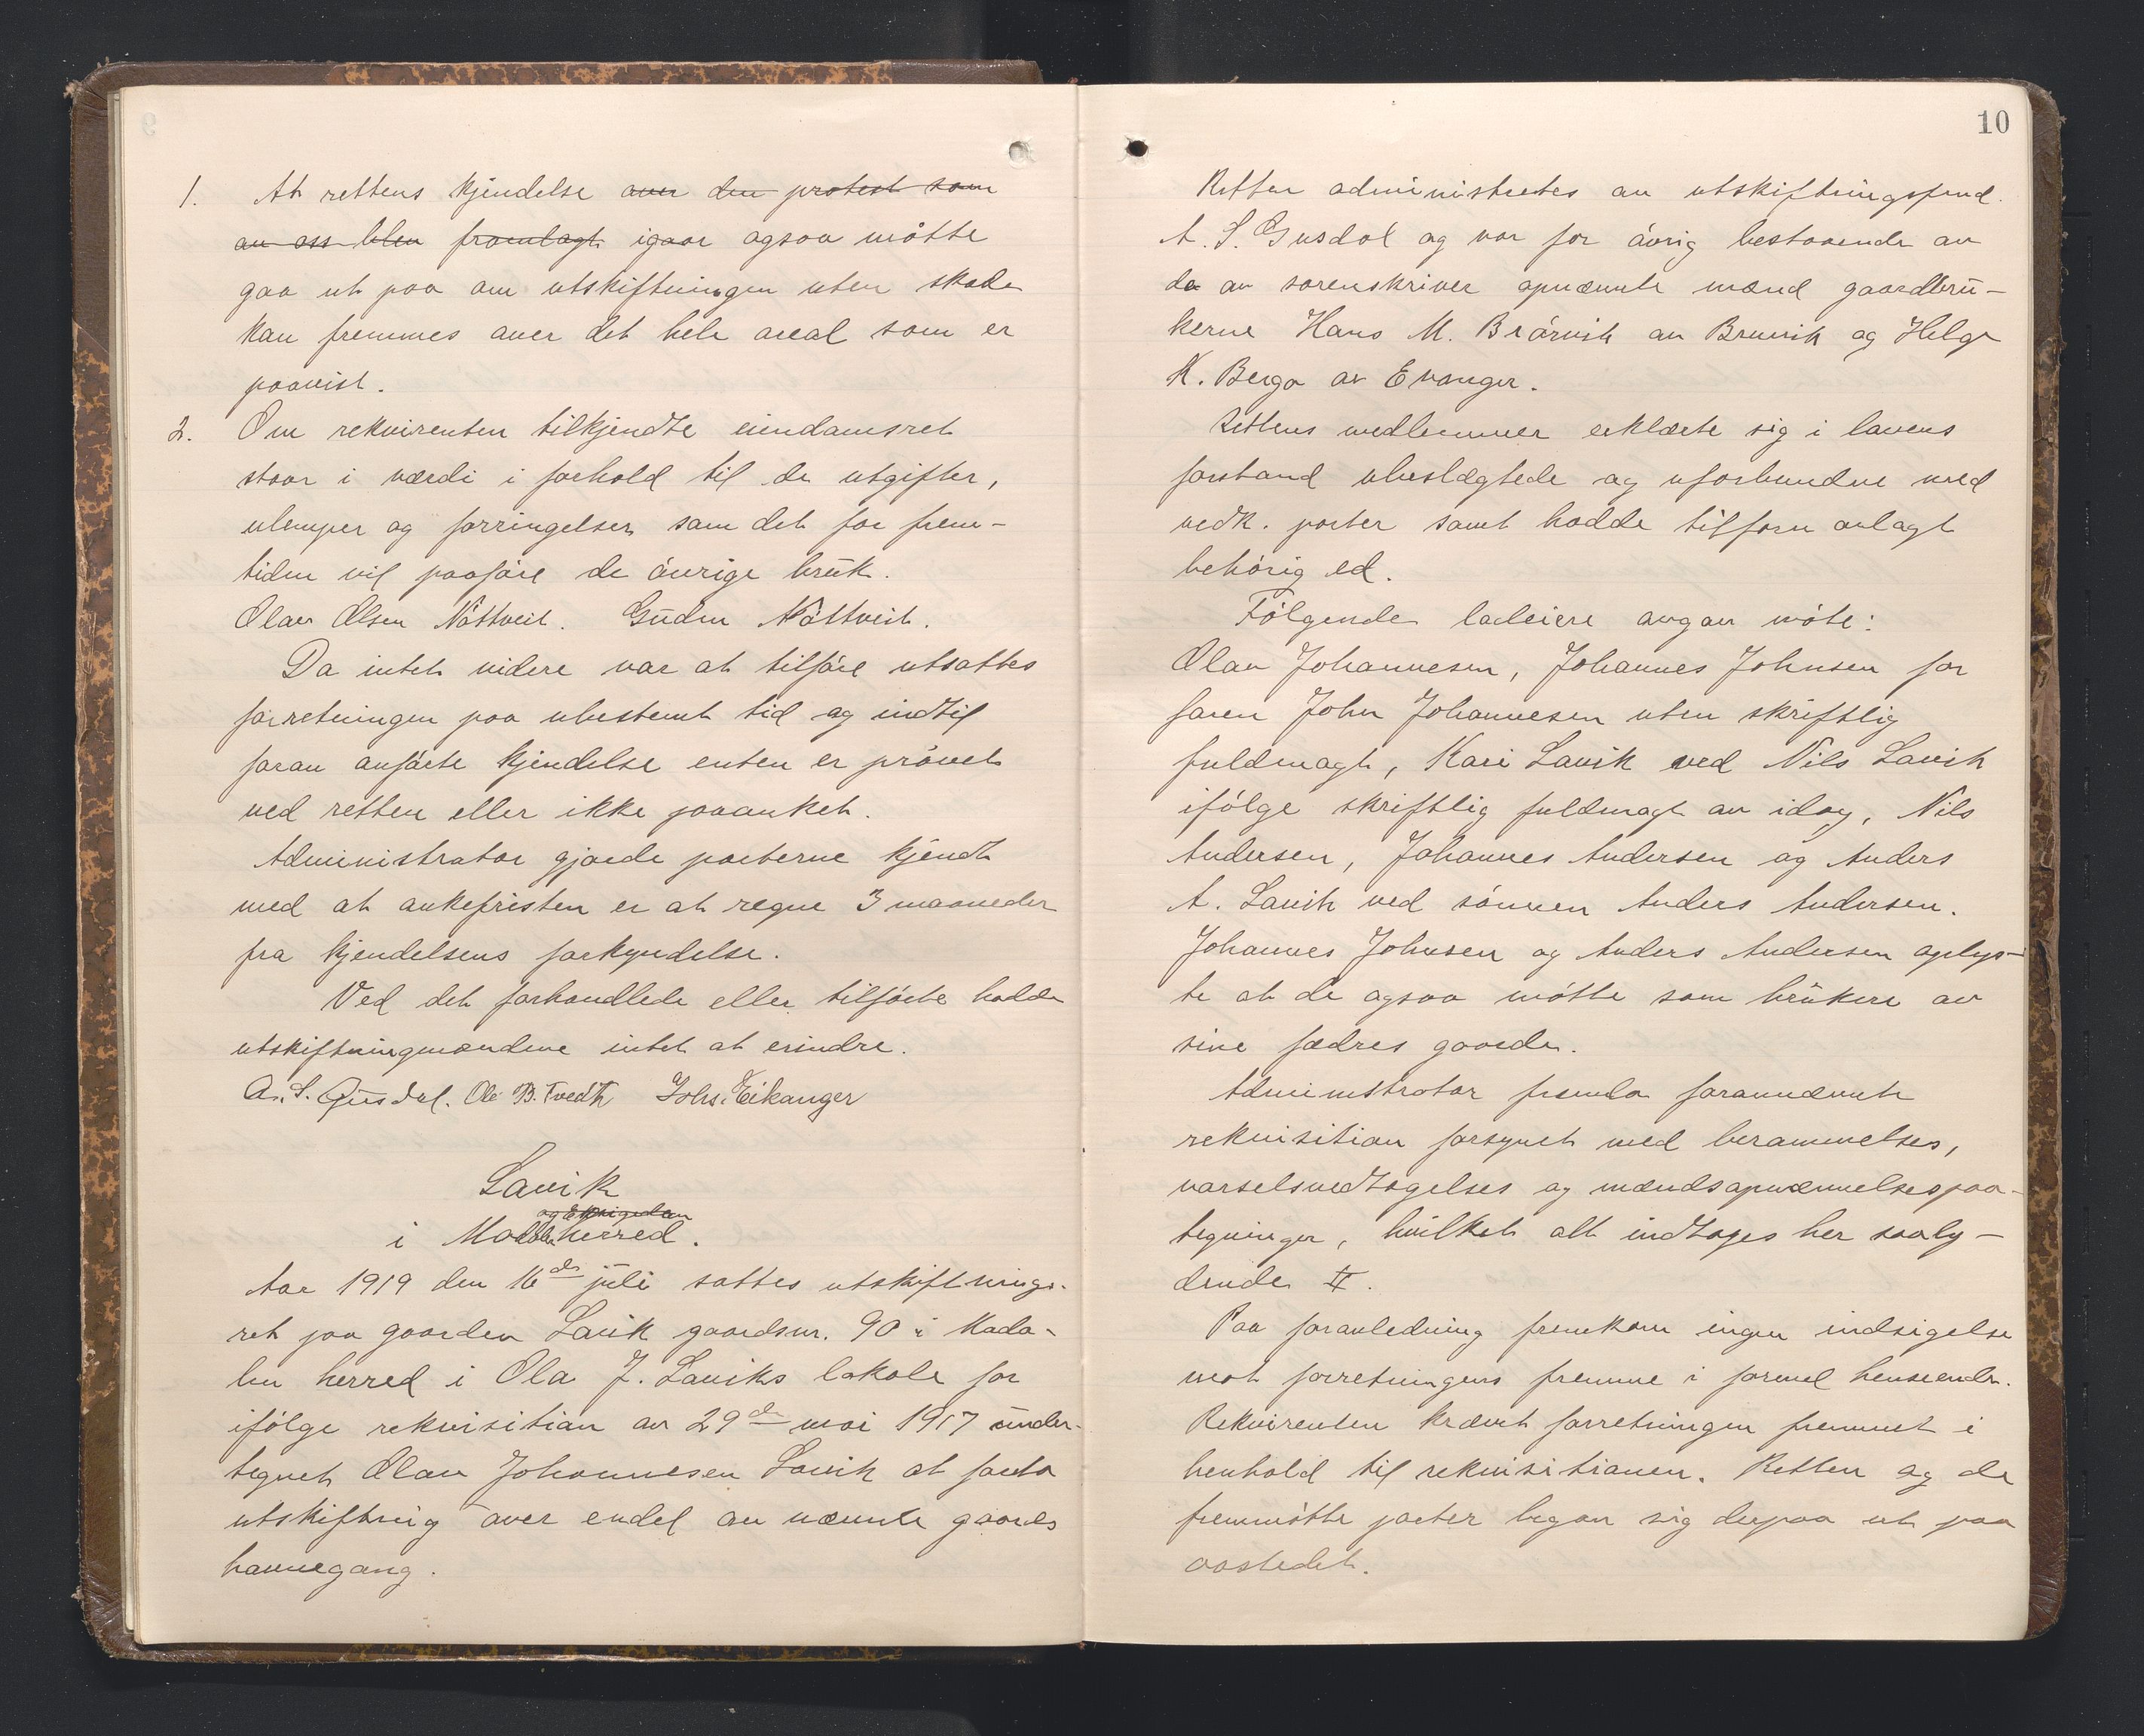 1. At rettens kjendelse over den protest som
av oss blev fremlagt igaar ogsaa måtte
gaa ut paa om utskiftningen uten skade
kan fremmes over det hele areal som er
paavist.
2. Om rekvirenten tilkjendte eiendomsret
staar i værdi i forhold til de utgifter,
ulemper og forringelser som det for frem-
tiden vil paaføre de øvrige bruk.
Olav Olsen Nåttveit. Gudm Nåttveit.
Da intet videre var at tilføre utsattes
forretningen paa ubestemt tid og indtil
foran anførte kjendelse enten er prøvet
ved retten eller ikke paaanket.
Administrator gjorde parterne kjendt
med at ankefristen er at regne 3 maaneder
fra kjendelsens forkyndelse.
Ved det forhandlede eller tilførte hadde
utskiftningmændene intet at erindre.
A. S. Gusdal. Ole B. Tvedt Johs. Eikanger
Lavik
i Modalen herred.
Aar 1919 den 16de juli sattes utskiftnings-
ret paa gaarden Lavik gaardsnr. 90 i Moda-
len herred i Ola J. Laviks lokale for
ifølge rekvisition av 29de mai 1917 under-
tegnet Olav Johannesen Lavik at foreta
utskiftning over endel av nævnte gaards
havnegang.
10
Retten administrertes av utskiftningsformd.
A. S. Gusdal og var for øvrig bestaaende av
de av sorenskriver opnævnte mænd gaardbru-
kerne Hans M. Brørvik av Bruvik og Helge
K. Berge av Evanger.
Rettens medlemmer erklærte sig i lovens
forstand ubeslægtede og uforbundne med
vedk. parter samt hadde tilforn avlagt
behørig ed.
Følgende lodeiere avgav møte:
Olav Johannesen, Johannes Johnsen for
faren John Johannesen uten skriftlig
fuldmagt, Kari Lavik ved Nils Lavik
ifølge skriftlig fuldmagt av idag, Nils
Andersen, Johannes Andersen og Anders
A. Lavik ved sønnen Anders Andersen.
Johannes Johnsen og Anders Andersen oplys-
te at de ogsaa møtte som brukere av
sine fædres gaarde.
Administrator fremla forannævnte
rekvisition forsynet med berammelses,
varselsvedtagelses og mændsopnævnelsespaa-
tegninger, hvilket alt indtages her saaly-
dende II.
Paa foranledning fremkom ingen indsigelse
mot forretningens fremme i formel henseende.
Rekvirenten krævet forretningen fremmet i
henhold til rekvisitionen. Retten og de
fremmøtte parter begav sig derpaa ut paa
aastedet.